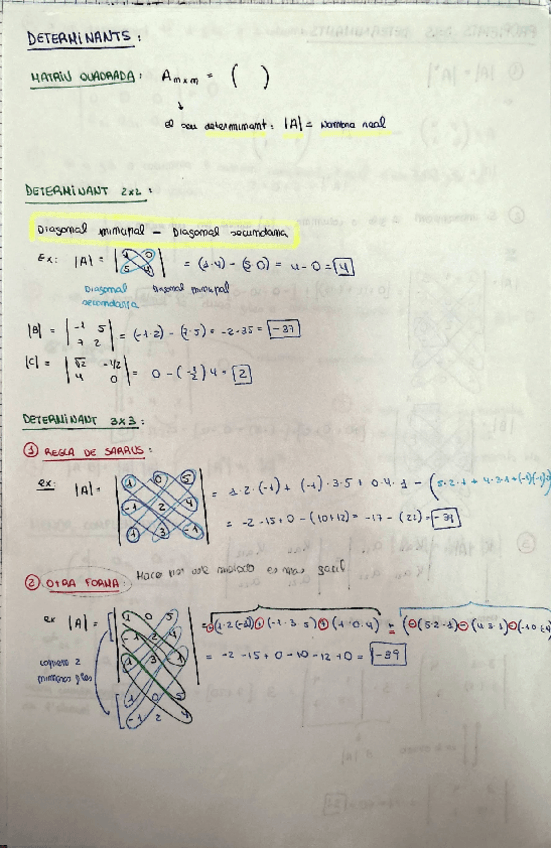 DETERMINANTS:
MATRIU QUADRADA: Amxm = ( )
El seu determinant: |A| = Nombre real
DETERMINANT 2x2:
Diagonal principal - Diagonal secundaria
Ex: |A| = | 1 0 | = (1·4) - (5·0) = 4-0 = 4
5 4
Diagonal secundaria Diagonal principal
|B| = | -1 5 | = (-1·2) - (7·5) = -2-35 = -37
7 2
|C| = | √2 -1/2 | = 0 - (-1/2) 4 = 2
4 0
DETERMINANT 3x3:
① REGLA DE SARRUS:
ex: |A| = | 1 0 5 | = 1·2·(-1) + (-1)·3·5 + 0·4·1 - (5·2·1 + 4·3·1 +(-1)(-1)0
-1 2 4
1 3 -1
= -2-15+0-(10+12) = -17-(22) = -39
② OTRA FORMA: Hacer por este método es más fácil
ex |A| = | 1 0 5 | = ⊕(1·2(-1)) ⊕(-1·3·5) ⊕(1·0·4) + (⊖(5·2·1) ⊖(4·3·1) ⊖(-1·0
-1 2 4
1 3 -1
1 0 5
-1 2 4
= -2-15+0-10-12+0 = -39
2 primeres files